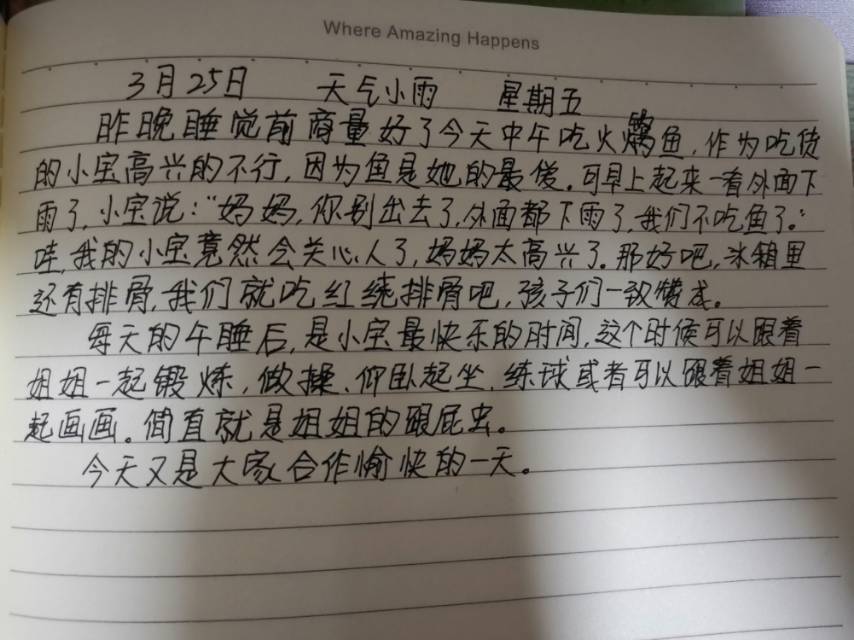 Where Amazing Happens
3月25日 天气小雨 星期五
昨晚睡觉前商量好了今天中午吃火锅鱼,作为吃货
的小宝高兴的不行,因为鱼是她的最爱。可早上起来一看外面下
雨了,小宝说:“妈妈,你别出去了,外面都下雨了,我们不吃鱼了。”
哇,我的小宝竟然会关心人了,妈妈太高兴了。那好吧,冰箱里
还有排骨,我们就吃红烧排骨吧,孩子们一致赞成。
每天的午睡后,是小宝最快乐的时间,这个时候可以跟着
姐姐一起锻炼,做操、仰卧起坐、练球或者可以跟着姐姐一
起画画。简直就是姐姐的跟屁虫。
今天又是大家合作愉快的一天。